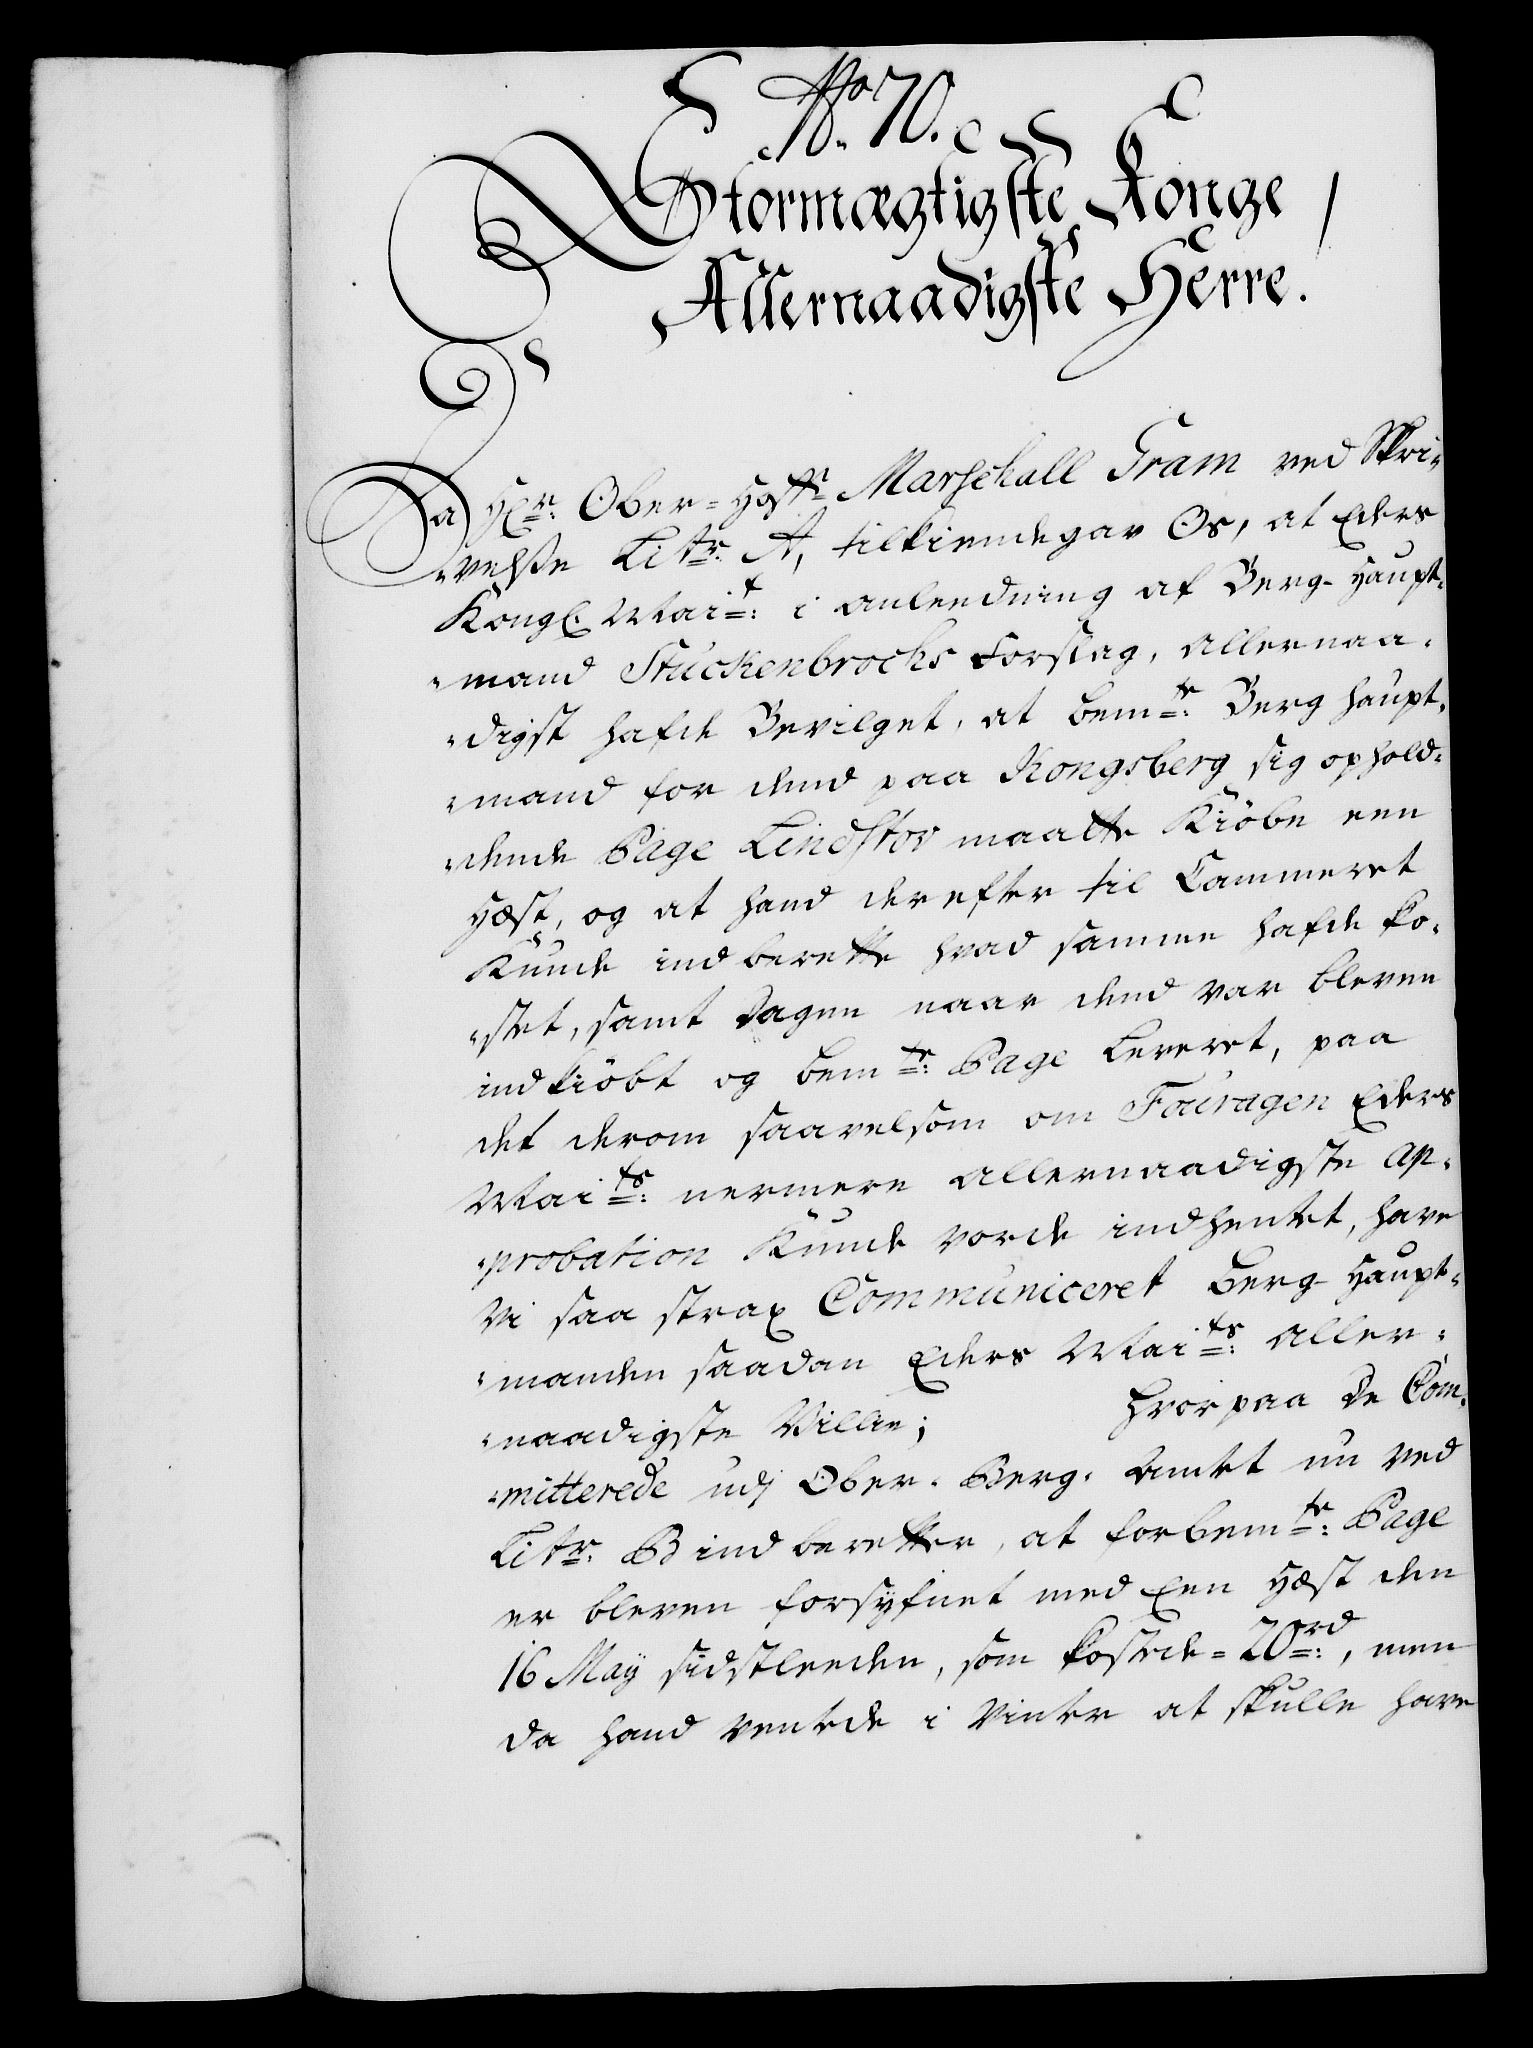 No. 70.
Stormægtigste Konge
Allernaadigste Herre!
Da Hr: Ober-Hoff Marschall Gram ved Skri-
velse Litr: A, tilkiendegav Os, at Eders
Kongl. Mait: i anleedning af Berg-Haupt-
mand Stuckenbrocks Forslag, allernaa-
digst hafde Bevilget, at bemte: Berg haupt-
mand for dend paa Kongsberg sig ophold-
dende Page Lindstov maatte Kiöbe een
Hæst, og at hand derefter til Cammeret
Kunde indberette hvad samme hafde ko-
stet, samt dagen naar dend var bleven
indkiöbt og bemte: Page leveret, paa
det derom saavelsom om Fouragen Eders
Maits: nermere allernaadigste Ap-
probation Kunde vorde indhentet, have
Vi saa strax Communiceret Berg-Haupt-
manden saadan Eders Maits: aller-
naadigste Villie; Hvorpaa de Com-
mitterede udj Ober-Berg-Amtet nu ved
Litr: B indberetter, at forbemte: Page
er bleven forsÿfnet med Een Hæst den
16 Maÿ sidstleeden, som kostede = 20 rd:, men
da hand ventede i Vinter at skulle have